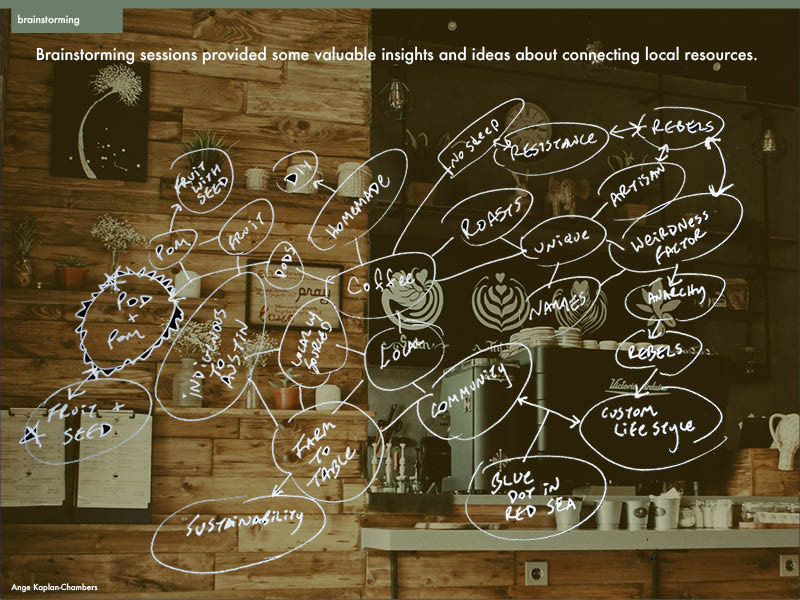 brainstorming
Brainstorming sessions provided some valuable insights and ideas about connecting local resources.
NO SLEEP
RESISTANCE
REBELS
FRUIT
WITH
SEED
DIY
HOMEMADE
ARTISAN
POM
FRUIT
ROASTS
UNIQUE
WEIRDNESS
FACTOR
PODS
Coffee
pray
POD
+
POM
INDIVIDUALS
TO
AUSTIN
LOCALLY
SOURCED
LOCAL
NAMES
ANARCHY
REBELS
COMMUNITY
Victoria Arduino
FRUIT +
SEED
FARM
TO
TABLE
CUSTOM
LIFE STYLE
BLUE
DOT IN
RED SEA
SUSTAINABILITY
Ange Kaplan-Chambers